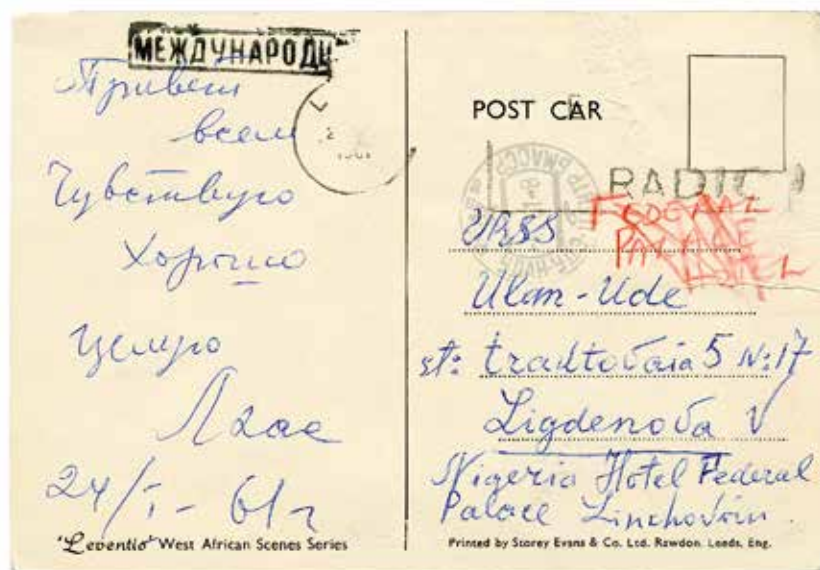 МЕЖДУНАРОДН
Привет
всем
Чувствую
Хорошо
целую
24/I- 61г
"Leventis" West African Scenes Series
POST CAR
RADIO
FEDERAL
PALACE
HOTEL
URSS
Ulan-Ude
st: tradtovaia 5 N:17
Ligdenova V
Nigeria Hotel Federal
Palace
Printed by Storey Evans & Co. Ltd. Rawdon. Leeds, Eng.